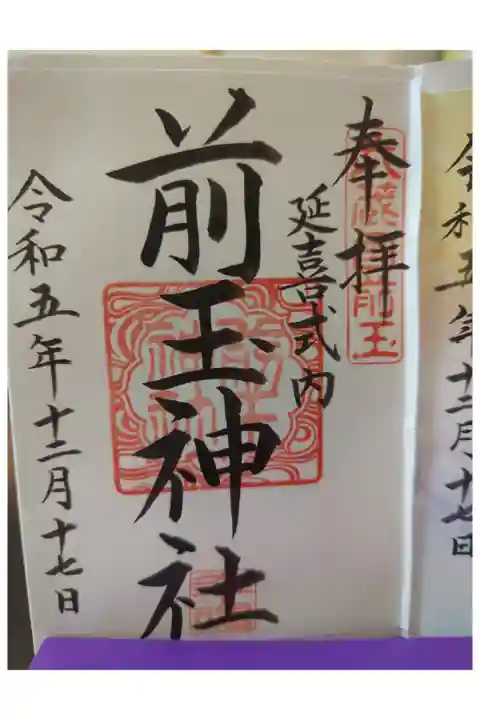 奉拝
延喜式内
前玉神社
令和五年十二月十七日
令和五年十二月十七日